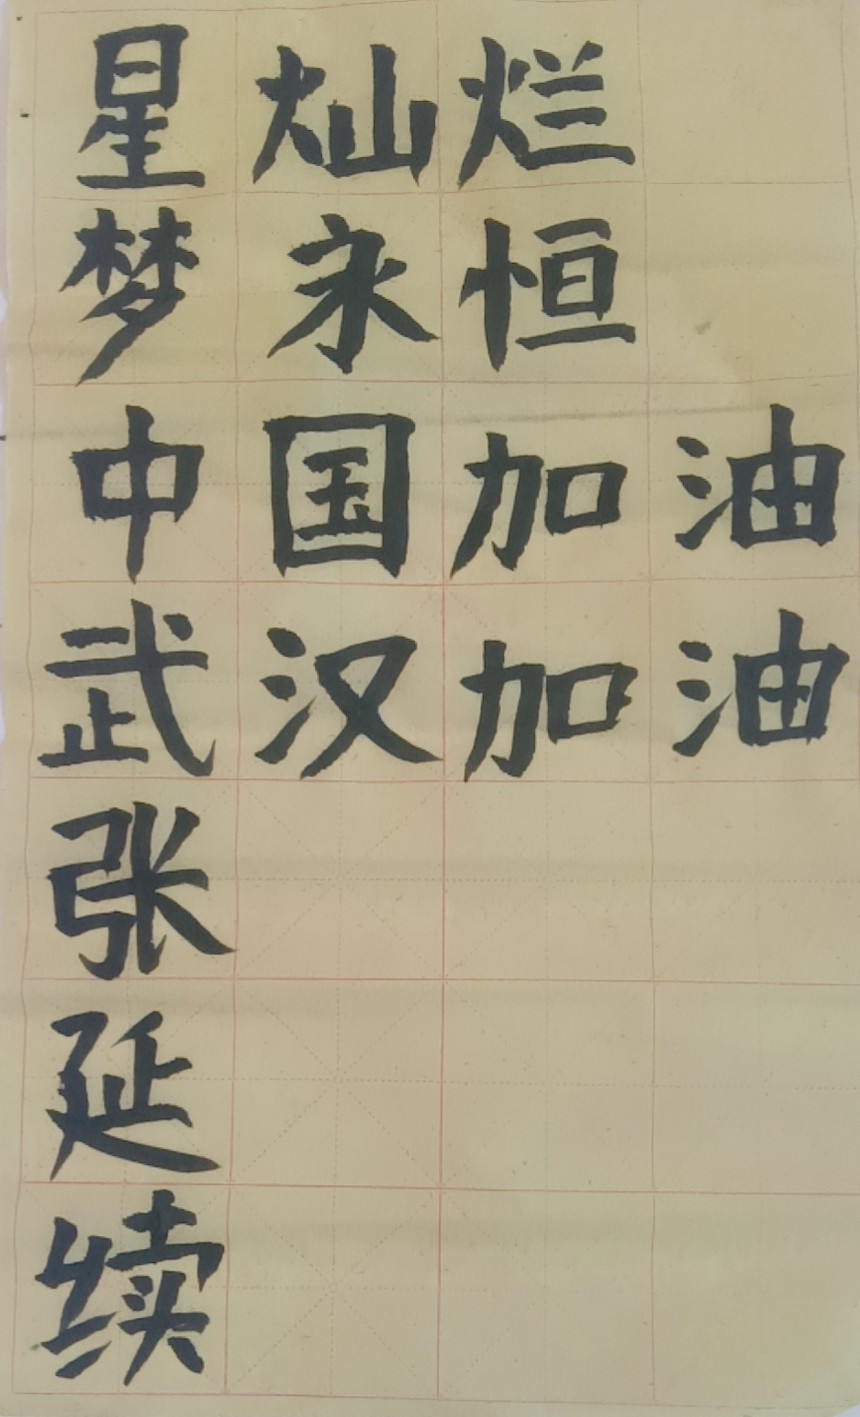 星灿烂
梦永恒
中国加油
武汉加油
张
延
续